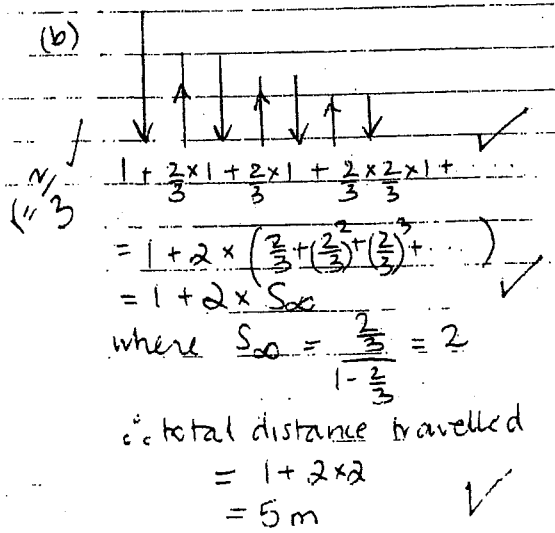 (b)
1 + 2/3 × 1 + 2/3 × 1 + 2/3 × 2/3 × 1 + ....
= 1 + 2 × (2/3 + (2/3)² + (2/3)³ + ...)
= 1 + 2 × S∞
where S∞ = (2/3)/(1 - 2/3) = 2
∴ total distance travelled
= 1 + 2×2
= 5 m